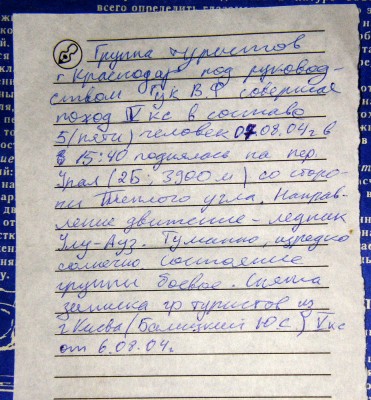 Группа туристов
г Краснодар под руковод-
ством Гук В Ф совершая
поход IV кс в составе
5 (пяти) человек 07 08.04г в
15:40 поднялась на пер.
Урал (2Б, 3900 м) со сторо-
ны Тёплого угла. Направ-
ление движение - ледник
Улу-Ауз. Туманно, изредка
солнечно. Состояние
группы боевое. Снята
записка гр туристов из
г Киева (Балицкий Ю.С.) V кс
от 6.08.04г